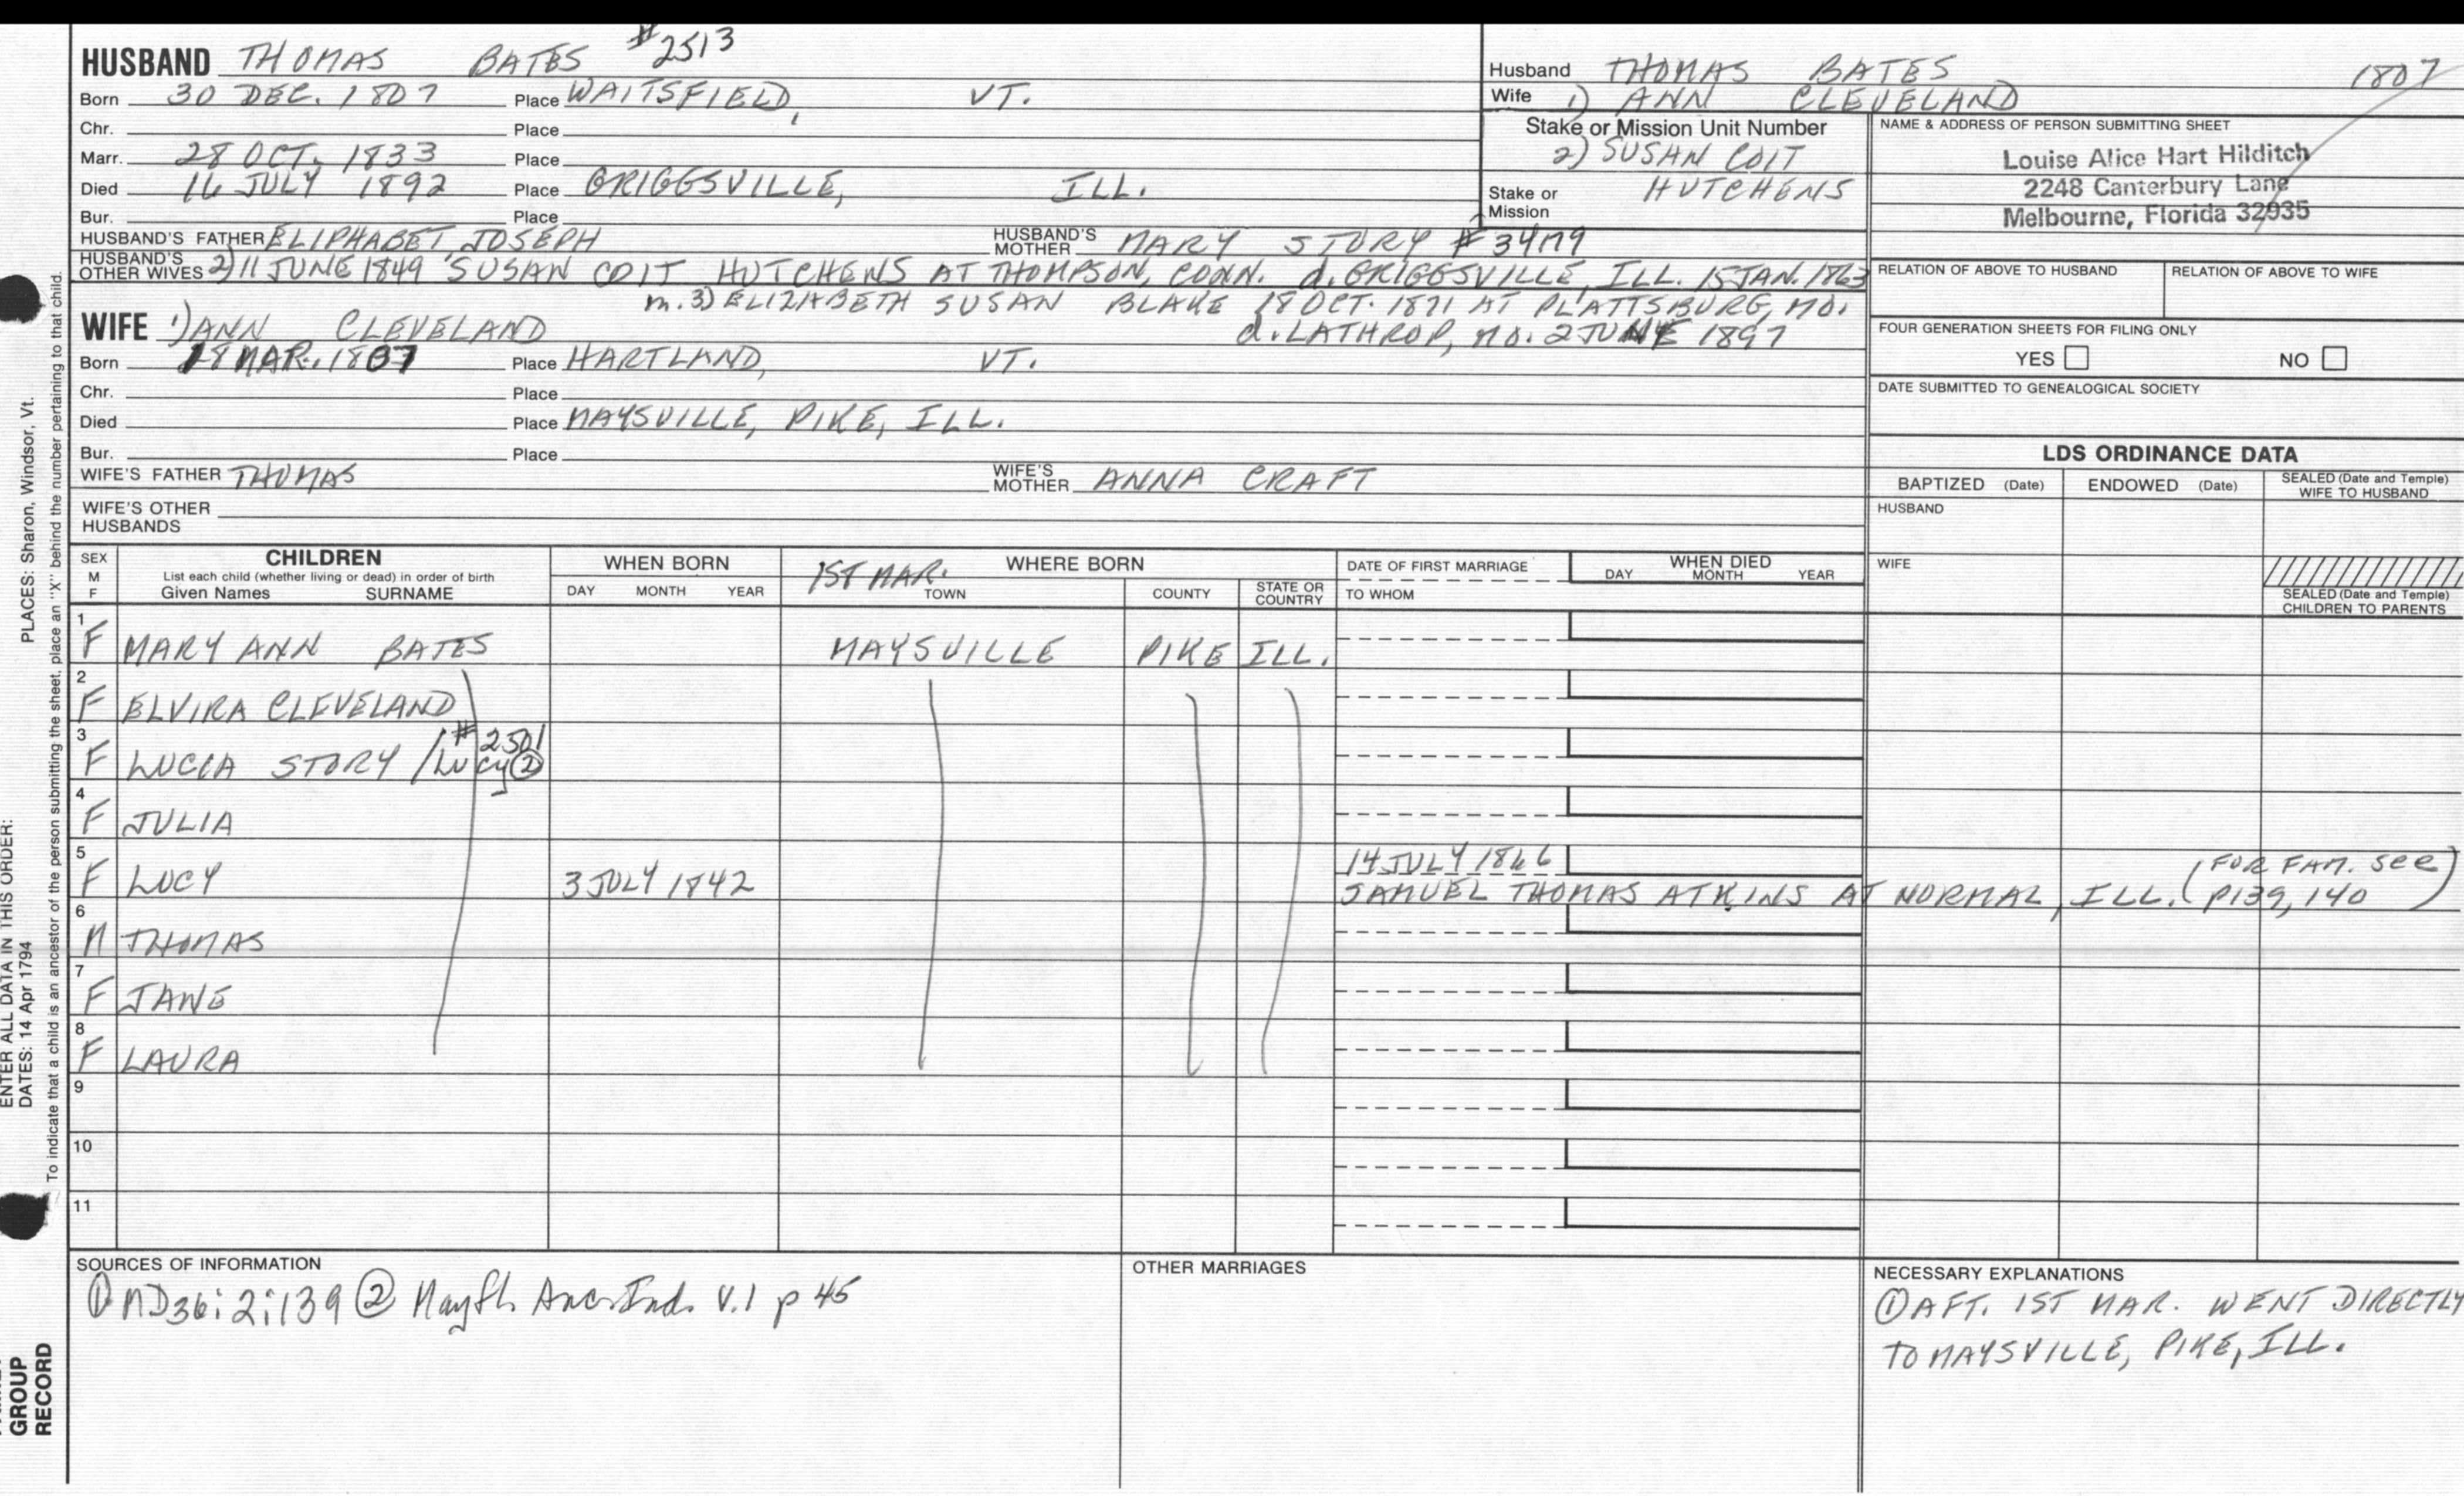 HUSBAND THOMAS BATES #2513
Born 30 DEC. 1807 Place WAITSFIELD, VT.
Chr. Place
Marr. 28 OCT. 1833 Place
Died 16 JULY 1892 Place GRIGGSVILLE, ILL.
Bur. Place
HUSBAND'S FATHER ELIPHABET JOSEPH HUSBAND'S MOTHER MARY STORY
HUSBAND'S OTHER WIVES 2) 11 JUNE 1849 SUSAN COIT HUTCHENS AT THOMPSON, CONN. d. GRIGGSVILLE, ILL. 15 JAN. 1863
m. 3) ELIZABETH SUSAN BLAKE 18 OCT. 1871 AT PLATTSBURG, MO.
d. LATHROP, MO. 2 JUNE 1897
WIFE 1) ANN CLEVELAND
Born 18 MAR. 1807 Place HARTLAND, VT.
Chr. Place
Died Place MAYSVILLE, PIKE, ILL.
Bur. Place
WIFE'S FATHER THOMAS WIFE'S MOTHER ANNA CRAFT
WIFE'S OTHER HUSBANDS
Husband THOMAS BATES 1807
Wife 1) ANN CLEVELAND
Stake or Mission Unit Number
2) SUSAN COIT
HUTCHENS
Stake or Mission
NAME & ADDRESS OF PERSON SUBMITTING SHEET
Louise Alice Hart Hilditch
2248 Canterbury Lane
Melbourne, Florida 32935
RELATION OF ABOVE TO HUSBAND RELATION OF ABOVE TO WIFE
FOUR GENERATION SHEETS FOR FILING ONLY
YES NO
DATE SUBMITTED TO GENEALOGICAL SOCIETY
LDS ORDINANCE DATA
BAPTIZED (Date) ENDOWED (Date) SEALED (Date and Temple) WIFE TO HUSBAND
HUSBAND
WIFE
SEALED (Date and Temple) CHILDREN TO PARENTS
SEX M F
CHILDREN
List each child (whether living or dead) in order of birth
Given Names SURNAME
WHEN BORN
DAY MONTH YEAR
1ST MAR. WHERE BORN
TOWN COUNTY STATE OR COUNTRY
DATE OF FIRST MARRIAGE
TO WHOM
WHEN DIED
DAY MONTH YEAR
1 F MARY ANN BATES MAYSVILLE PIKE ILL.
2 F ELVIRA CLEVELAND
3 F LUCIA STORY /Lucy ② #2501
4 F JULIA
5 F LUCY 3 JULY 1842 14 JULY 1866
SAMUEL THOMAS ATKINS AT NORMAL, ILL. (FOR FAM. SEE P139, 140)
6 M THOMAS
7 F JANE
8 F LAURA
9
10
11
SOURCES OF INFORMATION
① MD36:2:139 ② Mayfl. Anc. Ind. V.1 p 45
OTHER MARRIAGES
NECESSARY EXPLANATIONS
① AFT. 1ST MAR. WENT DIRECTLY
TO MAYSVILLE, PIKE, ILL.
PLACES: Sharon, Windsor, Vt.
ENTER ALL DATA IN THIS ORDER:
DATES: 14 Apr 1794
To indicate that a child is an ancestor of the person submitting the sheet, place an "X" behind the number pertaining to that child.
GROUP
RECORD